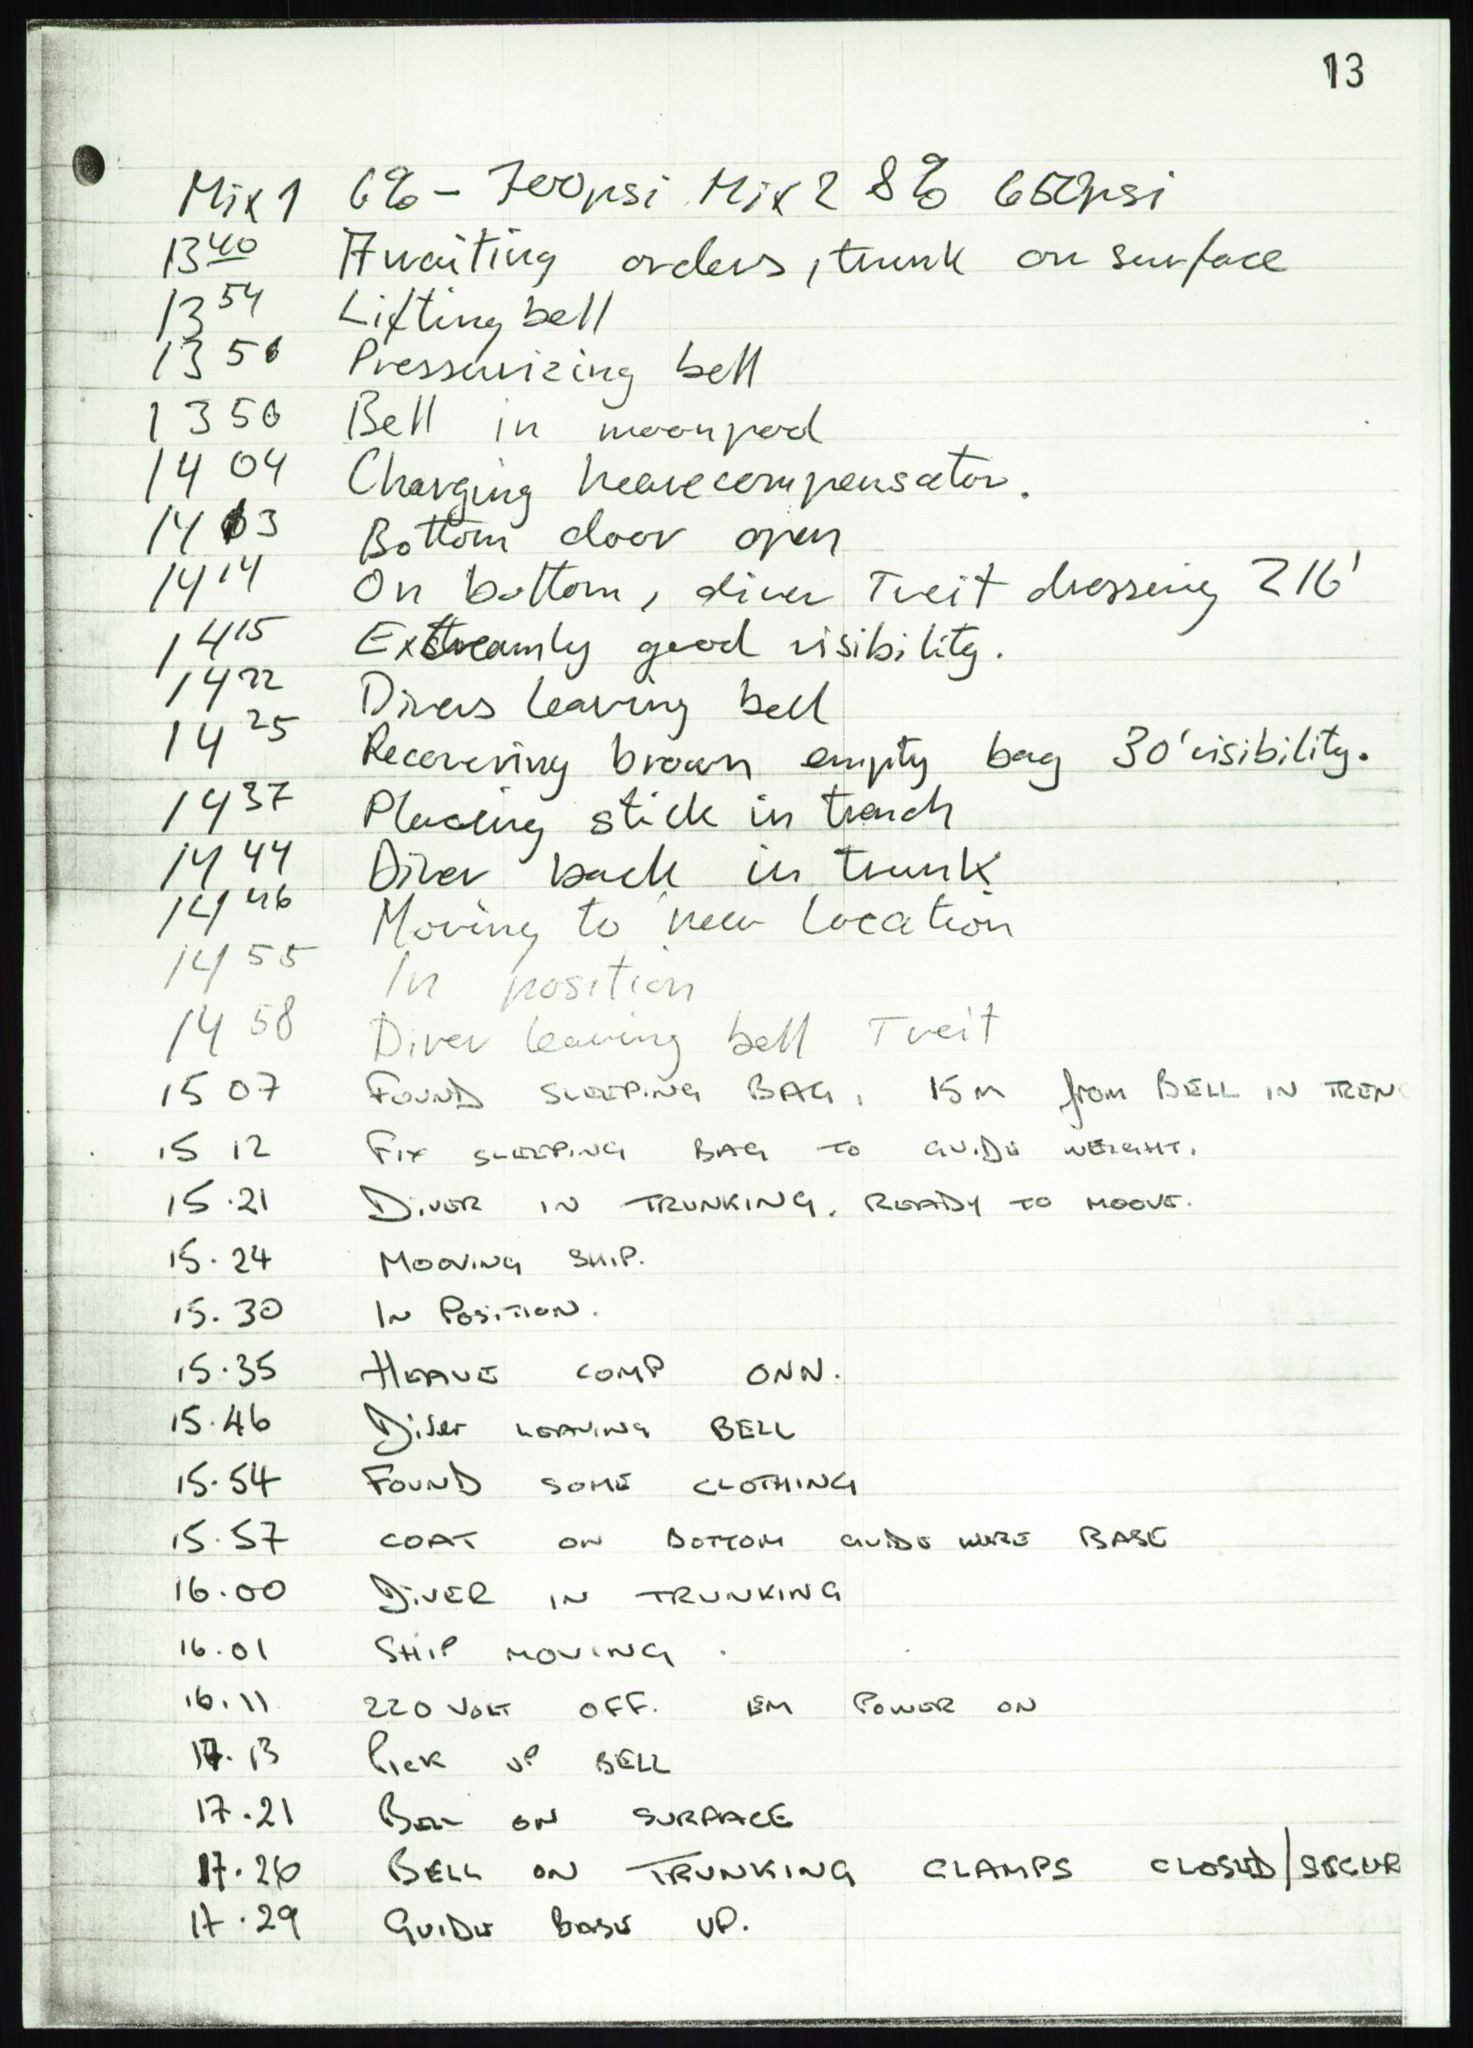 13
Mix 1 6% - 700psi Mix 2 8% 650psi
13 40 Awaiting orders, trunk on surface
13 54 Lifting bell
13 56 Pressurizing bell
13 56 Bell in moonpool
14 04 Charging heavecompensator.
14 03 Bottom door open
14 14 On bottom, diver Tveit dressing 216'
14 15 Extreamly good visibility.
14 22 Divers leaving bell
14 25 Recovering brown empty bag 30' visibility.
14 37 Placing stick in trench
14 44 Diver back in trunk
14 46 Moving to new location
14 55 In position
14 58 Diver leaving bell Tveit
15 07 FOUND SLEEPING BAG, 15 M from BELL IN TREN
15 12 FIX SLEEPING BAG TO GUIDE WEIGHT.
15.21 DIVER IN TRUNKING. READY TO MOOVE.
15.24 MOOVING SHIP.
15.30 IN POSITION.
15.35 HEAVE COMP ONN.
15.46 Diver LEAVING BELL
15.54 FOUND SOME CLOTHING
15.57 COAT ON BOTTOM GUIDE WIRE BASE
16.00 DIVER IN TRUNKING
16.01 SHIP MOVING.
16.11 220 VOLT OFF. EM POWER ON
17.13 PICK UP BELL
17.21 BELL ON SURFACE
17.26 BELL ON TRUNKING CLAMPS CLOSED/SECUR
17.29 GUIDE BASE UP.